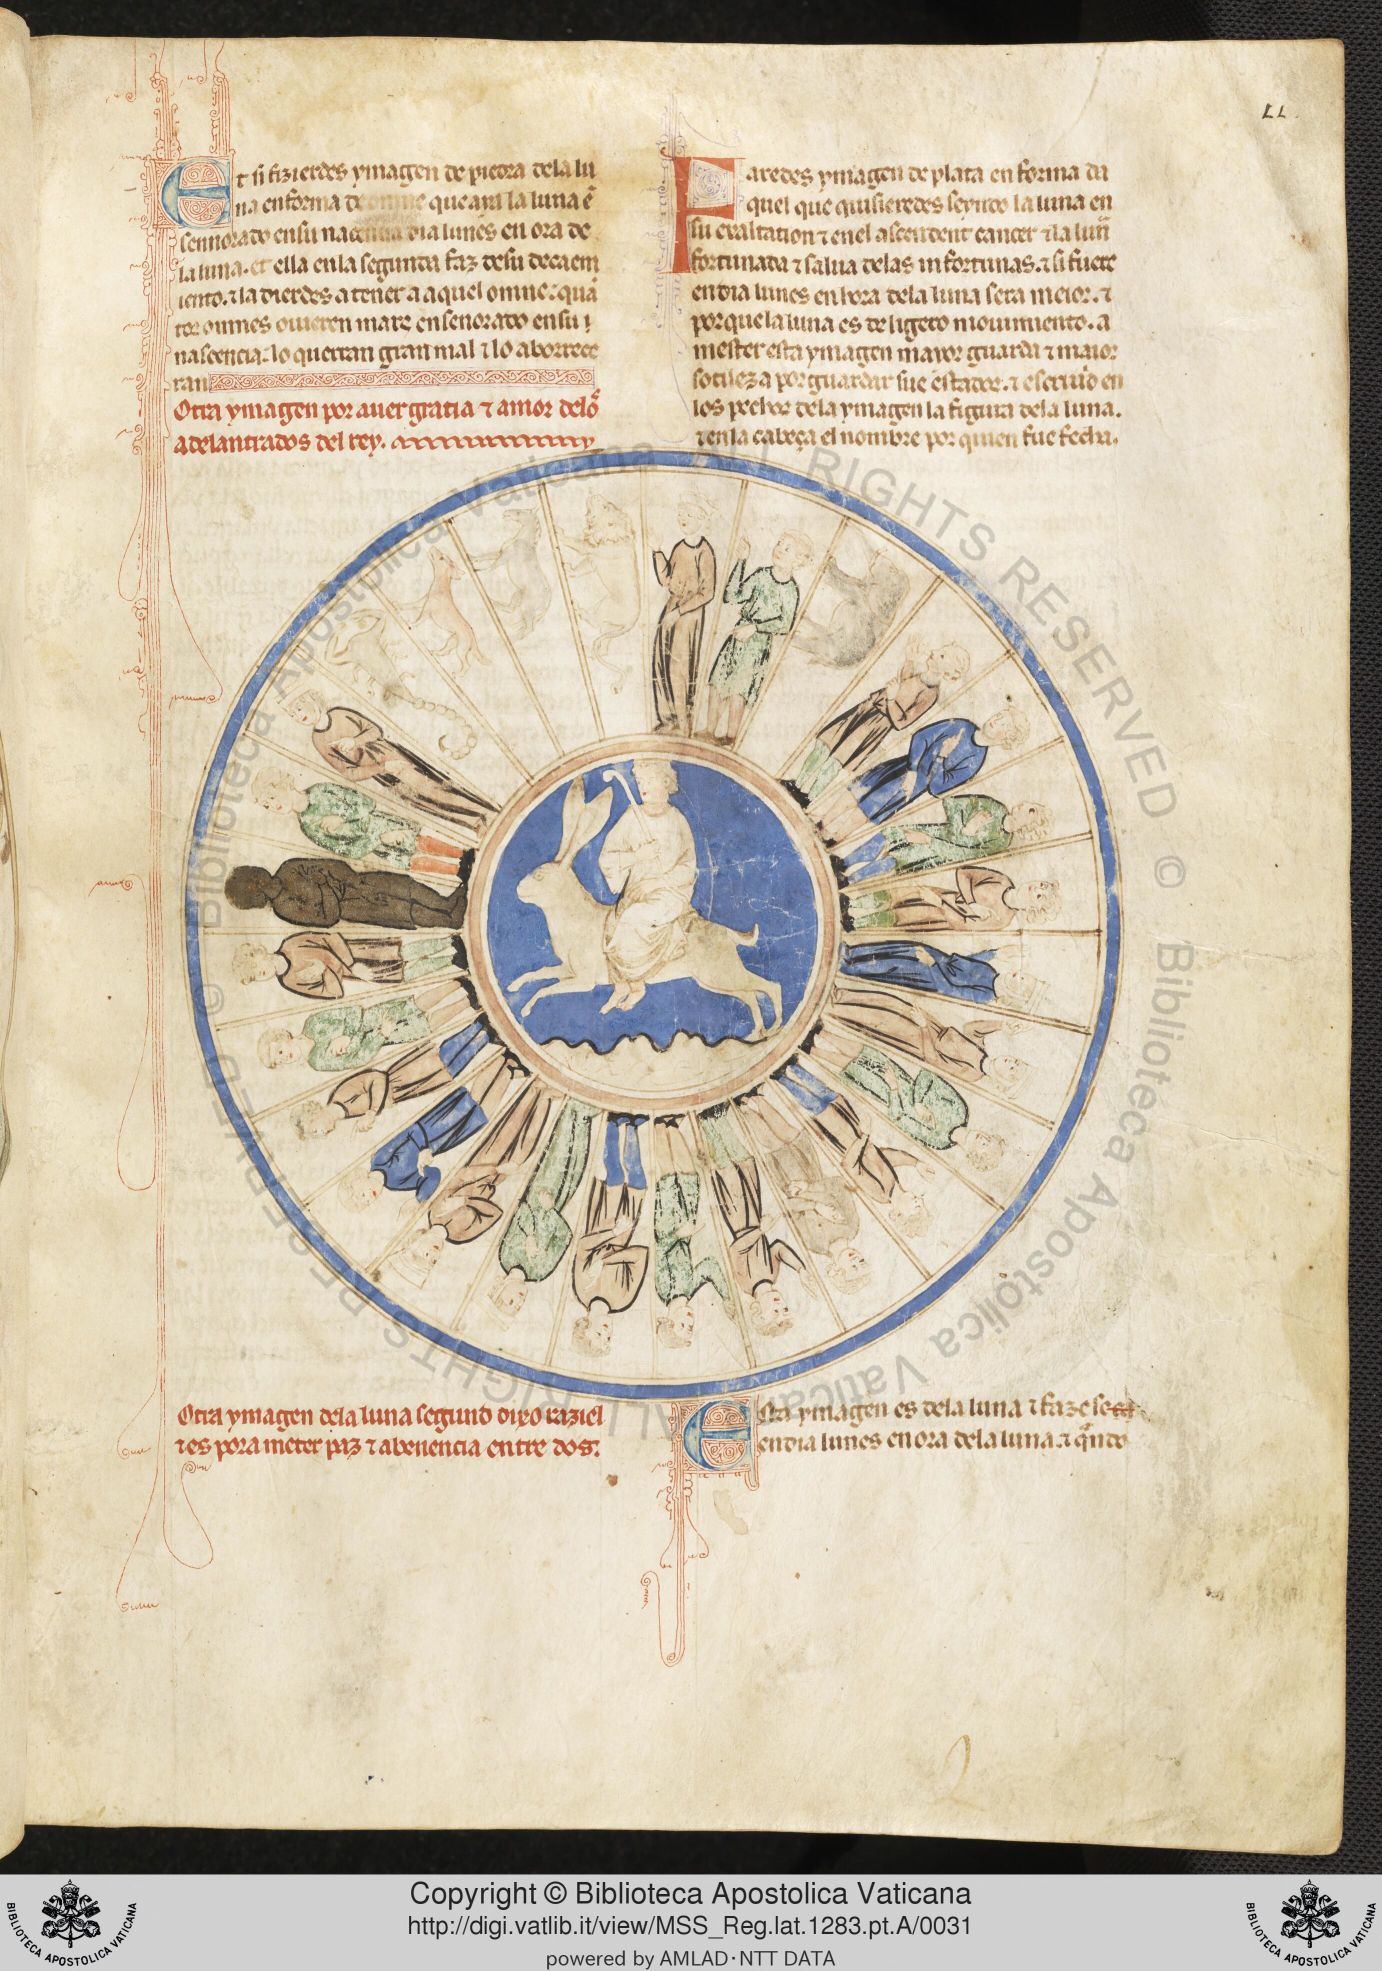 Et si fizierdes ymagen de piedra de la lu
na en forma de omne que aya la luna e͂
sennorado en su nacencia dia lunes en ora de
la luna. et ella en la segunda faz de su decaem
iento. ⁊ la dierdes a tener a aquel omne: quā
tos omnes ouieren marz ensenorado en su
nascencia: lo querran gran mal ⁊ lo aborrece
ran
Otra ymagen por auer gratia ⁊ amor delo͂
adelantrados del rey.
Faredes ymagen de plata en forma da
quel que quisieredes seyendo la luna en
su exaltation ⁊ en el ascendent cancer ⁊ la lun͂
fortunada ⁊ salua delas infortunas. ⁊ si fuere
en dia lunes en hora de la luna sera meior. ⁊
por que la luna es de ligero mouimiento. a
mester esta ymagen mayor guarda ⁊ maior
sotileza por guardar sue estador. ⁊ escriuid en
los pechos de la ymagen la figura de la luna.
⁊ en la cabeça el nombre por quien fue fecha.
LL
Otra ymagen dela luna segund dixo raziel
⁊ es pora meter paz ⁊ abenencia entre dos:
Esta ymagen es dela luna ⁊ faze se
en dia lunes en ora dela luna. ⁊ q͂ndo
© Biblioteca Apostolica Vaticana ALL RIGHTS RESERVED © Biblioteca Apostolica Vaticana ALL RIGHTS RESERVED
BIBLIOTECA APOSTOLICA VATICANA
Copyright © Biblioteca Apostolica Vaticana
http://digi.vatlib.it/view/MSS_Reg.lat.1283.pt.A/0031
powered by AMLAD·NTT DATA
BIBLIOTECA APOSTOLICA VATICANA